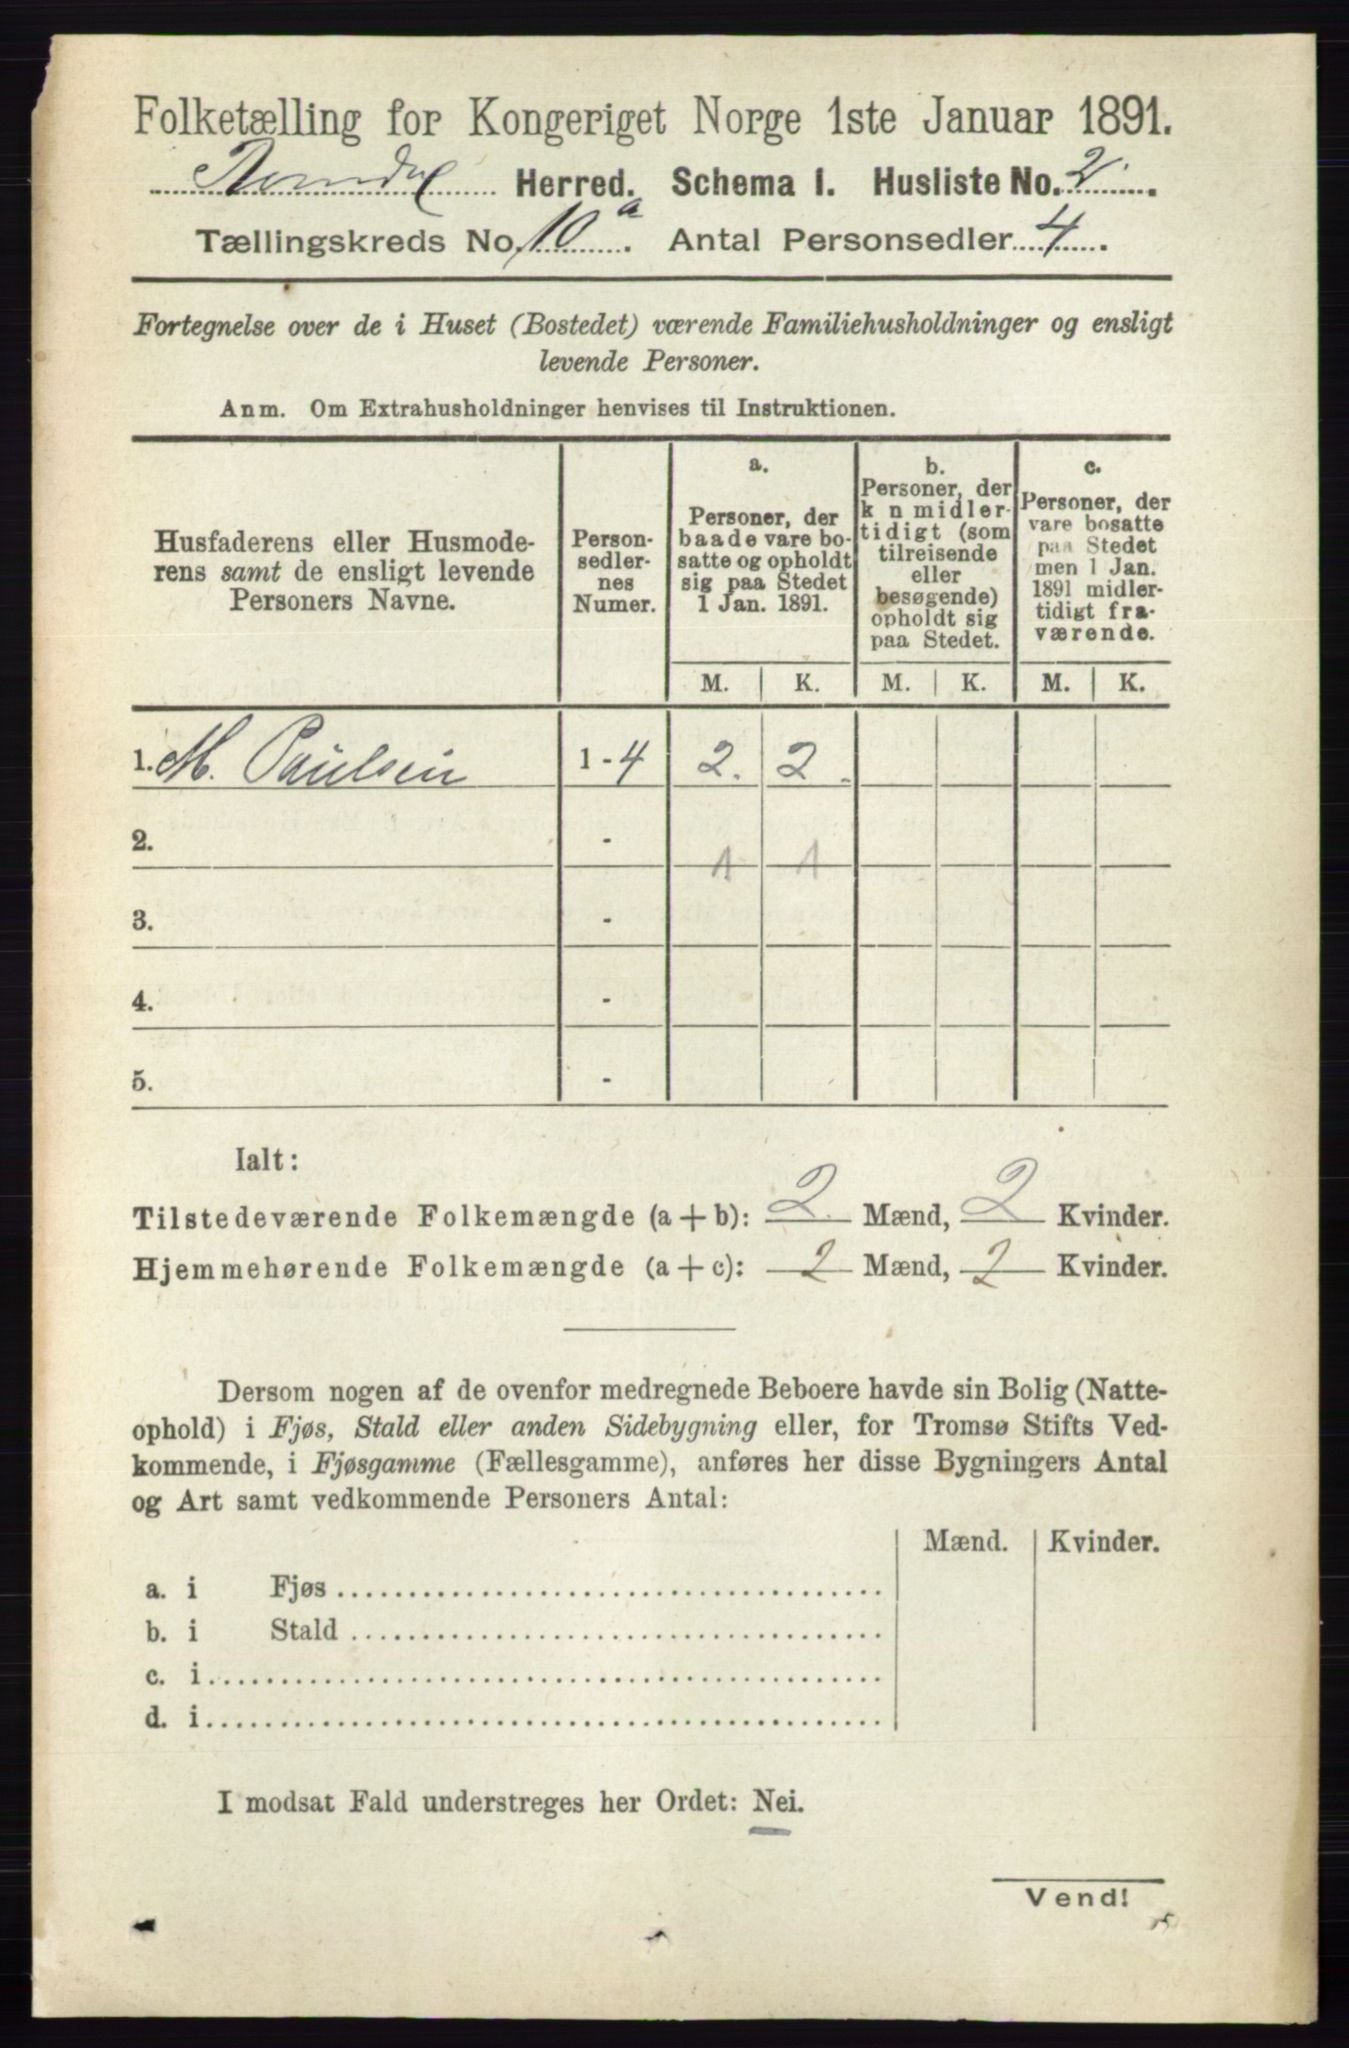 Folketælling for Kongeriget Norge 1ste Januar 1891.
Herred. Schema 1. Husliste No. 2
Tællingskreds No. 10a. Antal Personsedler 4.
Fortegnelse over de i Huset (Bostedet) værende Familiehusholdninger og ensligt
levende Personer.
Anm. Om Extrahusholdninger henvises til Instruktionen.
Husfaderens eller Husmode-
rens samt de ensligt levende
Personers Navne.
Person-
sedler-
nes
Numer.
a.
Personer, der
baade vare bo-
satte og opholdt
sig paa Stedet
1 Jan. 1891.
b.
Personer, der
k n midler-
tidigt (som
tilreisende
eller
besøgende)
opholdt sig
paa Stedet.
c.
Personer, der
vare bosatte
paa Stedet
men 1 Jan.
1891 midler-
tidigt fra-
værende.
M. K. M. K. M. K.
1. M. Paulsen 1 - 4 2. 2.
2. -
1 1
3. -
4. -
5. -
Ialt:
Tilstedeværende Folkemængde (a + b): 2 Mænd, 2 Kvinder.
Hjemmehørende Folkemængde (a + c): 2 Mænd, 2 Kvinder.
Dersom nogen af de ovenfor medregnede Beboere havde sin Bolig (Natte-
ophold) i Fjøs, Stald eller anden Sidebygning eller, for Tromsø Stifts Ved-
kommende, i Fjøsgamme (Fællesgamme), anføres her disse Bygningers Antal
og Art samt vedkommende Personers Antal:
Mænd. Kvinder.
a. i Fjøs
b. i Stald
c. i
d. i
I modsat Fald understreges her Ordet: Nei.
Vend!